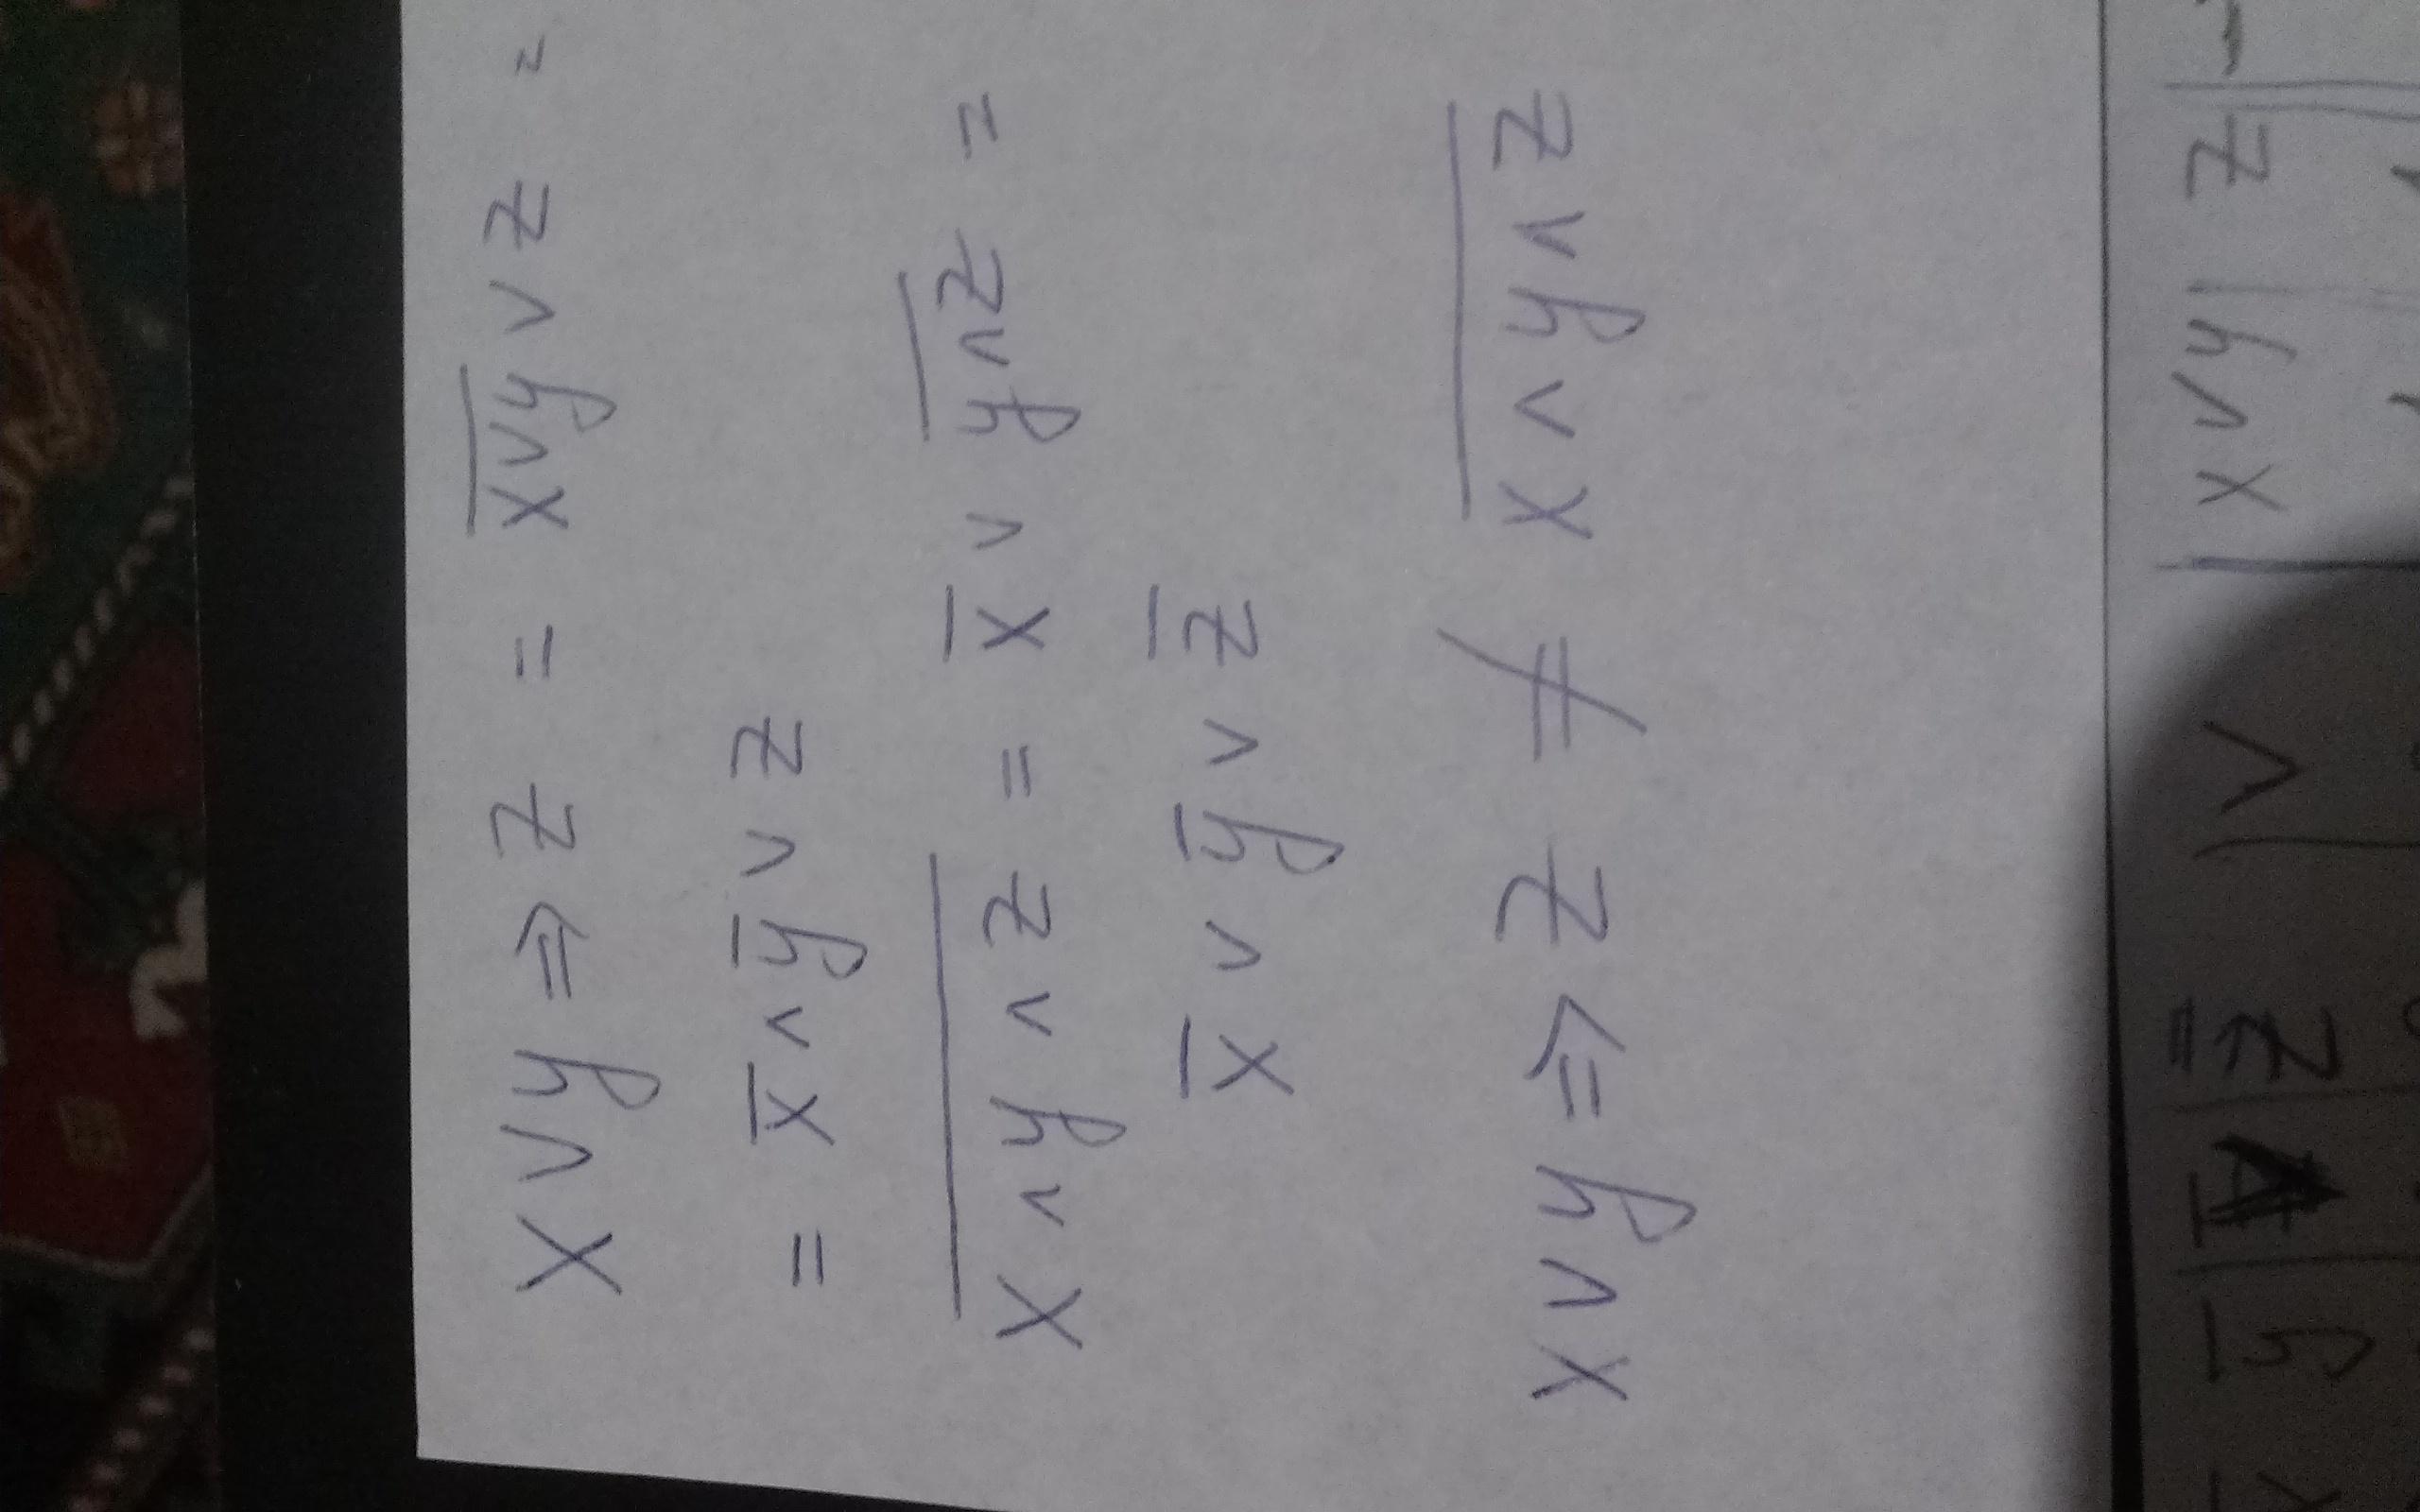 x ∨ y ⇒ z = \overline{x∨y} ∨ z =
= x̄ ∨ ȳ ∨ z
\overline{x ∨ y ∨ z} = x̄ ∨ \overline{y∨z} =
x̄ ∨ ȳ ∨ z̄
x ∨ y ⇒ z ≠ \overline{x ∨ y ∨ z}
x̄ | ȳ | z̿ | ∨ | x∨y | z